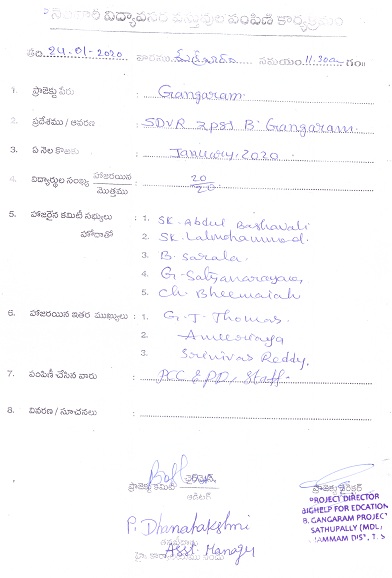 సంచారి విద్యావనరు వస్తువుల పంపిణి కార్యక్రమం
తేది. 24-01-2020 వారము. శుక్రవారం సమయం. 11:30am గం॥
1. ప్రాజెక్టు పేరు : Gangaram
2. ప్రదేశము / ఆవరణ : SDVR ZPSS B. Gangaram.
3. ఏ నెల కొరకు : January, 2020.
4. విద్యార్థుల సంఖ్య హాజరయిన : 20
మొత్తము 20
5. హాజరైన కమిటీ సభ్యులు : 1. SK. Abdul Bashavali
హోదాతో 2. SK. Lalmohammad.
3. B. Sarala.
4. G. Satyanarayana,
5. Ch. Bheemaiah
6. హాజరయిన ఇతర ముఖ్యులు : 1. G. T. Thomas.
2.
3. Srinivas Reddy.
7. పంపిణీ చేసిన వారు : PCC & PD, Staff.
8. వివరణ / సూచనలు :
ప్రాజెక్టు కమిటీ ఛైర్మన్,
ప్రాజెక్టు డైరెక్టర్
PROJECT DIRECTOR
BIGHELP FOR EDCATION
B. GANGARAM PROJECT
SATHUPALLY (MDL)
KHAMMAM DIST, T.S
P. Dhanalakshmi
Asst. Manager